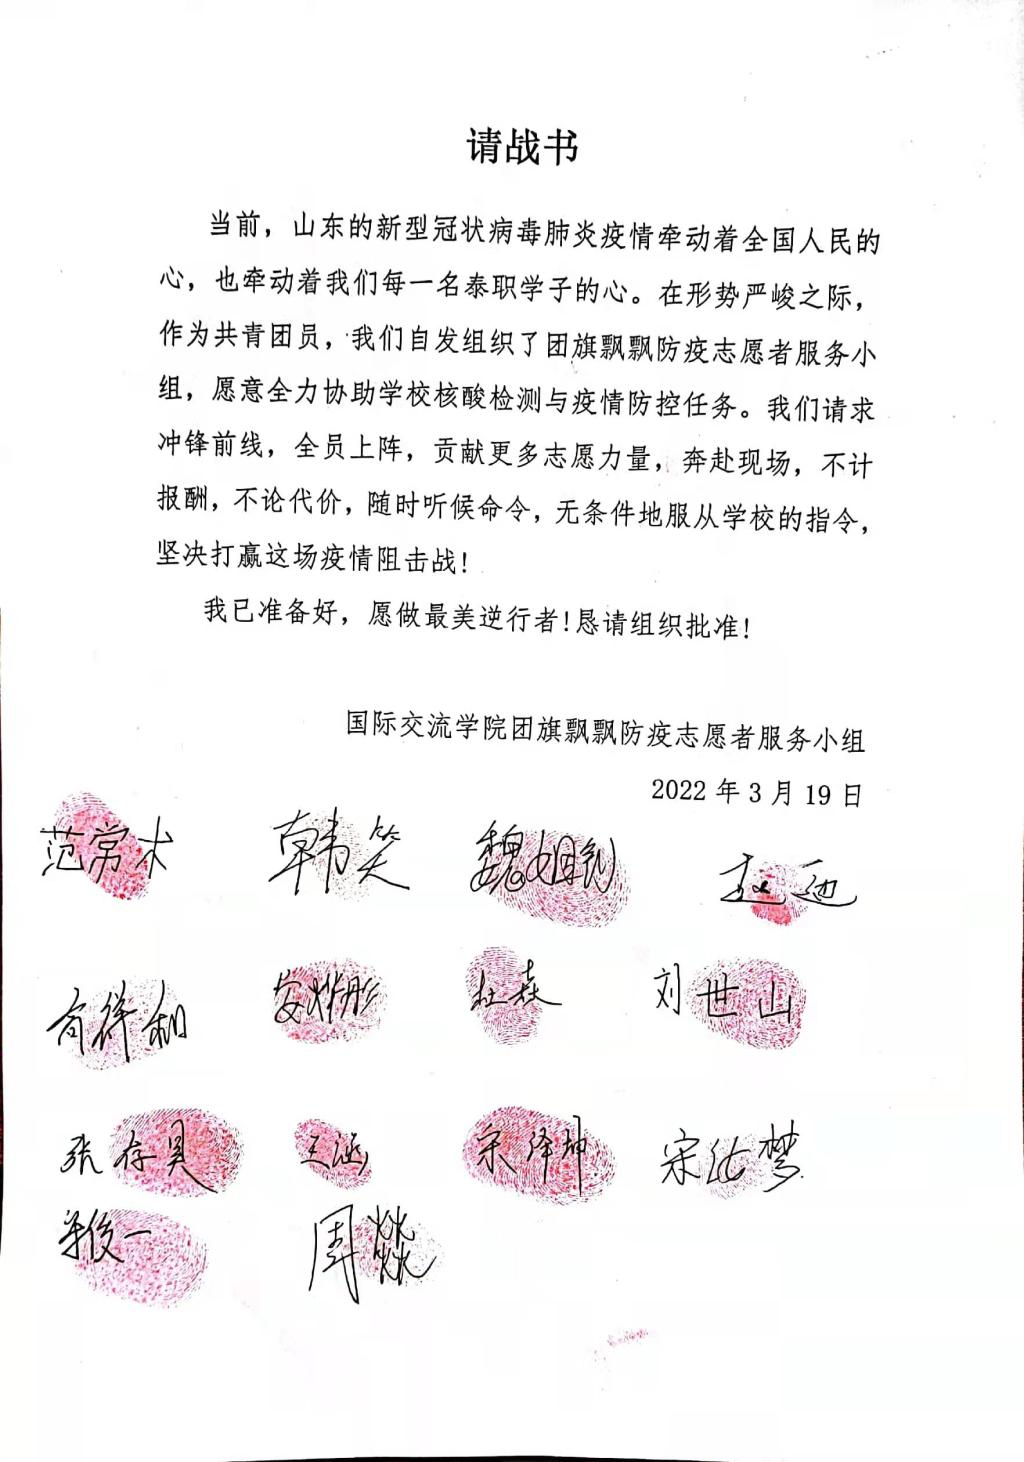 请战书
当前，山东的新型冠状病毒肺炎疫情牵动着全国人民的
心，也牵动着我们每一名泰职学子的心。在形势严峻之际，
作为共青团员，我们自发组织了团旗飘飘防疫志愿者服务小
组，愿意全力协助学校核酸检测与疫情防控任务。我们请求
冲锋前线，全员上阵，贡献更多志愿力量，奔赴现场，不计
报酬，不论代价，随时听候命令，无条件地服从学校的指令，
坚决打赢这场疫情阻击战！
我已准备好，愿做最美逆行者！恳请组织批准！
国际交流学院团旗飘飘防疫志愿者服务小组
2022 年 3 月 19 日
范常木 韩笑 赵迺
杜森 刘世山
张存具 王涵 宋泽坤
周燚